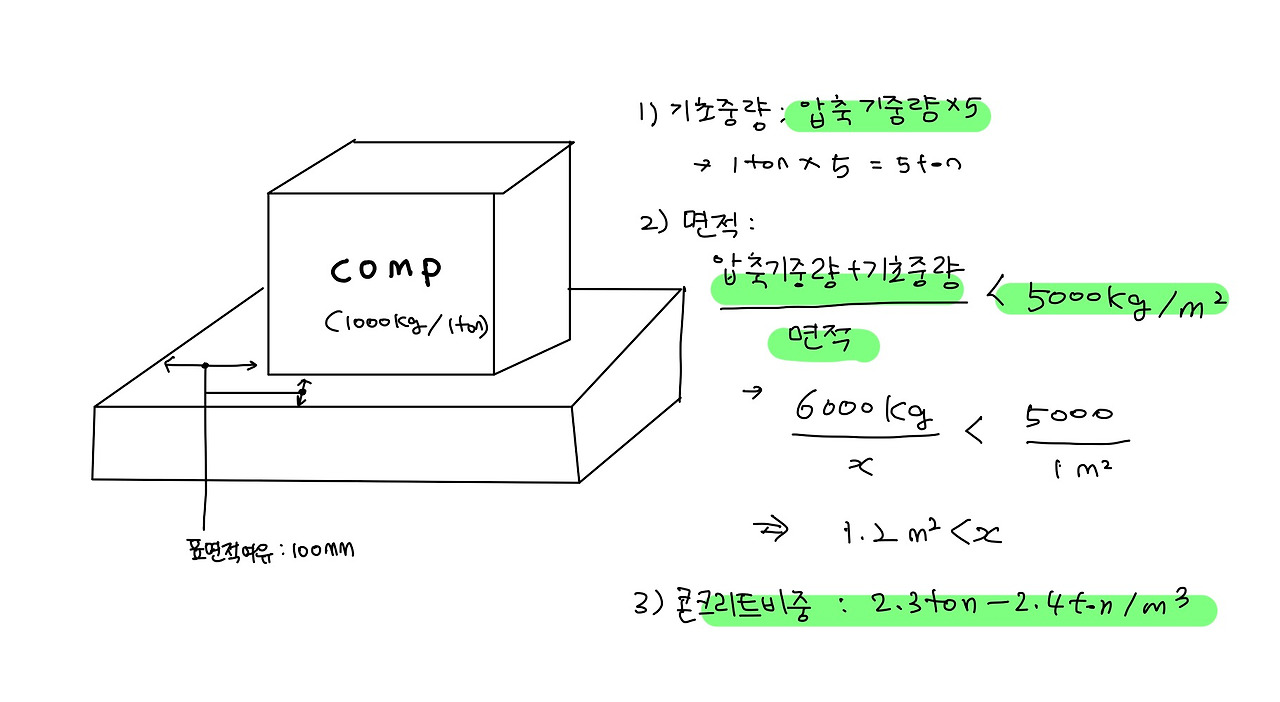 comp
(1000kg/1ton)
표면적여유 : 100mm
1) 기초중량 : 압축기중량×5
→ 1ton × 5 = 5ton
2) 면적 :
압축기중량+기초중량
< 5000kg/m²
면적
→
6000kg < 5000
x 1m²
⇒ 1.2m² < x
3) 콘크리트비중 : 2.3ton - 2.4ton/m³